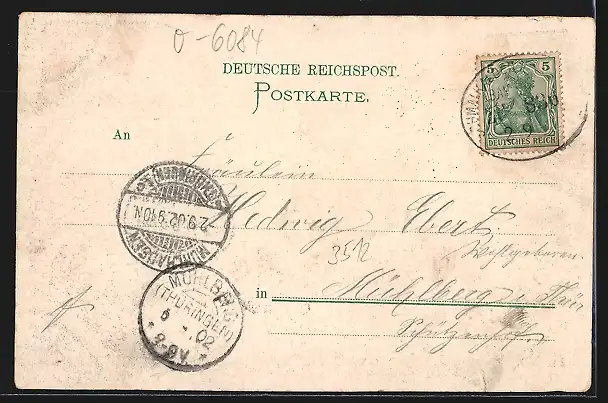 0-6084
DEUTSCHE REICHSPOST.
POSTKARTE.
5 5
DEUTSCHES REICH
An
Fräulein
Hedwig Ebert
Wohlgeboren
3512
in Mühlberg i. Thür
2.9.02.9-10.N.
MÜHLBERG
(THÜRINGEN)
02